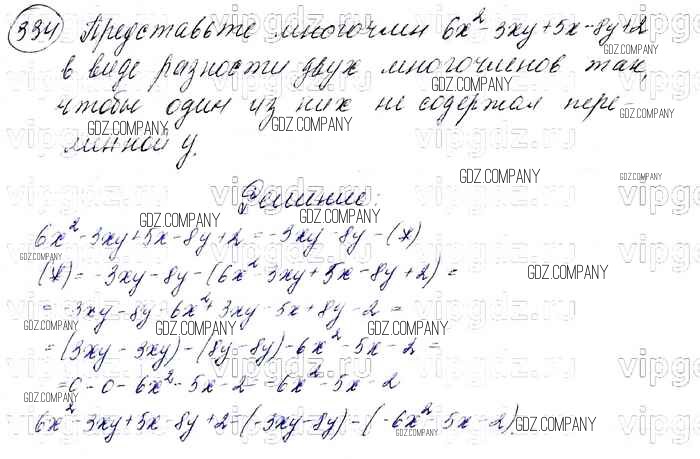 334 Представьте многочлен 6x² - 3xy + 5x - 8y + 2
в виде разности двух многочленов так,
чтобы один из них не содержал пере-
менной y.
Решение:
6x² - 3xy + 5x - 8y + 2 = -3xy - 8y - (*)
(*) = -3xy - 8y - (6x² - 3xy + 5x - 8y + 2) =
= -3xy - 8y - 6x² + 3xy - 5x + 8y - 2 =
= (3xy - 3xy) - (8y - 8y) - 6x² - 5x - 2 =
= 0 - 0 - 6x² - 5x - 2 = -6x² - 5x - 2
6x² - 3xy + 5x - 8y + 2 = (-3xy - 8y) - (-6x² - 5x - 2)
GDZ.COMPANY
vipgdz.ru